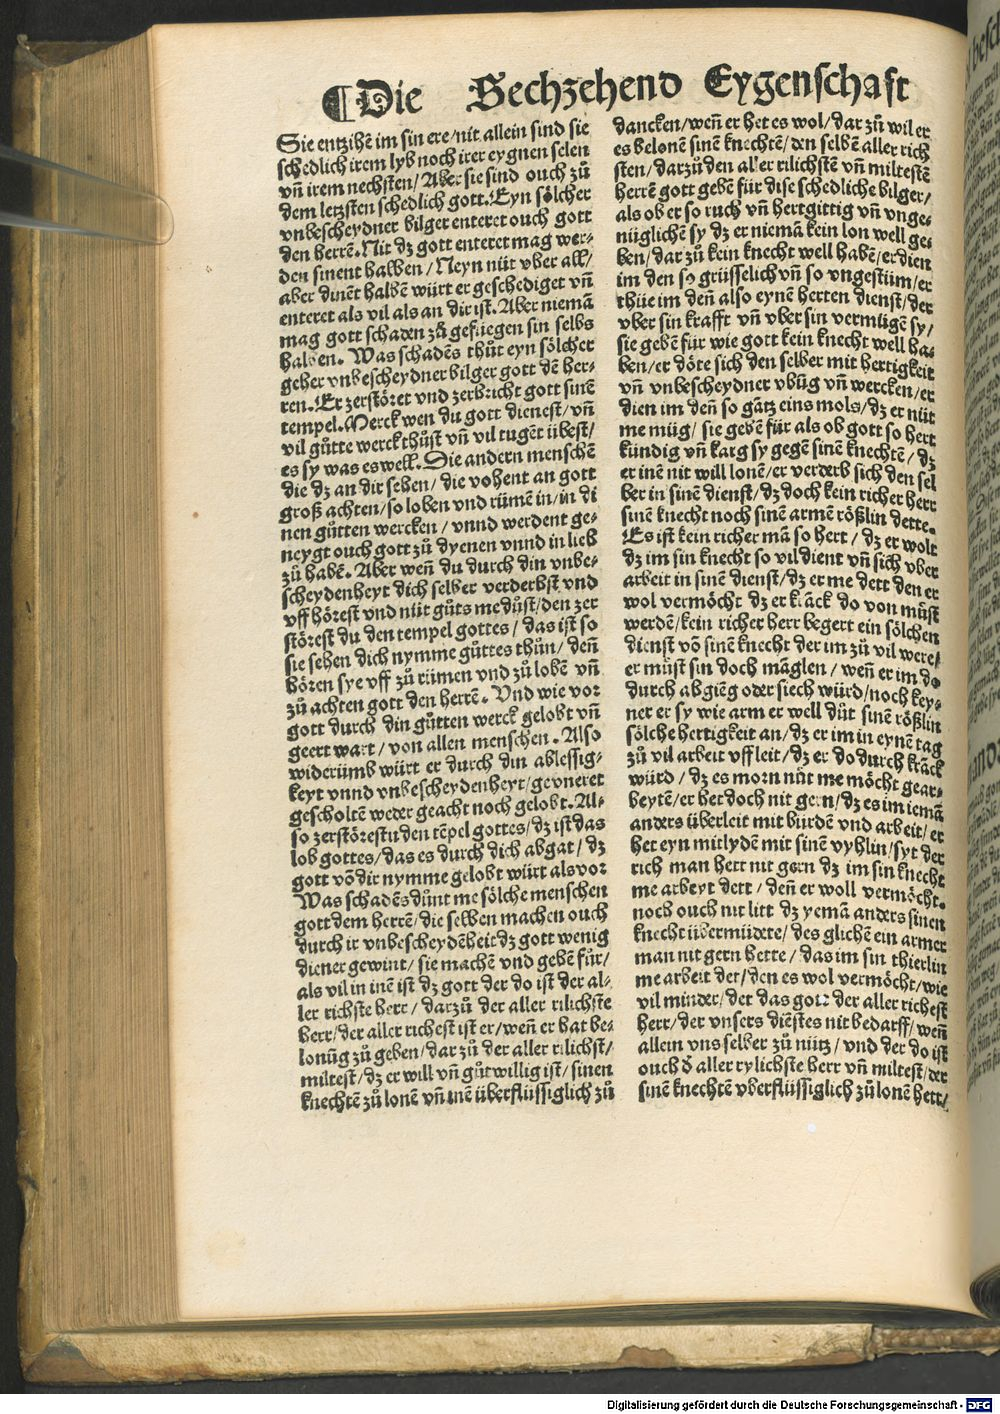 ¶Die Sechzehend Eygenschaft
Sie entzihē im sin ere/nit allein sind sie
schedlich irem lyb noch irer eygnen selen
vñ irem nechsten/Aber sie sind ouch zů
dem letzsten schedlich gott. Eyn sölcher
vnbescheydner bilger enteret ouch gott
den herrē. Nit dz gott enteret mag wer⸗
den sinent halben/Neyn nüt vber all/
aber dinēt halbē würt er geschediget vñ
enteret als vil als an dir ist. Aber niemā
mag gott schaden zů gefüegen sin selbs
halben. Was schadēs thüt eyn sölcher
geher vnbescheydner bilger gott dē her⸗
ren. Er zerstöret vnd zerbricht gott sinē
tempel. Merck wen du gott dienest/vñ
vil gůtte werck thůst vñ vil tugēt übest/
es sy was es well. Die andern menschē
die dz an dir sehen/die vohent an gott
groß achten/so loben vnd rümen in/in di
nen gůtten wercken/vnnd werdent ge⸗
neygt ouch gott zů dyenen vnnd in lieb
zů habē. Aber weñ du durch din vnbe⸗
scheydenheyt dich selber verderbst vnd
vff hörest vnd nüt gůts me důst/den zer
störest du den tempel gottes/das ist so
sie sehen dich nymme gůttes thůn/deñ
hören sye vff zů rümen vnd zů lobē vñ
zů achten gott den herrē. Vnd wie vor
gott durch din gůtten werck gelobt vñ
geert wart/von allen menschen. Also
widerūmb würt er durch din ablessig⸗
keyt vnnd vnbescheydenheyt/gevneret
gescholtē weder geacht noch gelobt. Al⸗
so zerstörestu den tēpel gottes/dz ist das
lob gottes/das es durch dich abgat/dz
gott vō dir nymme gelobt würt als vor
Was schadēs důnt me sölche menschen
gott dem herrē/die selben machen ouch
durch ir vnbescheydēheit dz gott wenig
diener gewint/sie machē vnd gebē für/
als vil in inē ist dz gott der do ist der al⸗
ler richste herr/darzů der aller rilichste
herr/der aller richest ist er/weñ er hat be⸗
lonūg zů geben/dar zů der aller rilichst/
miltest/dz er will vñ gůtwillig ist/sinen
knechtē zů lonē vñ inē überflüssiglich zů
dancken/weñ er het es wol/dar zů wil er
es belonē sinē knechtē/den selbē aller rich
sten/darzů den aller rilichstē vñ miltestē
herrē gott gebē für dise schedliche bilger/
als ob er so ruch vñ hertgittig vñ vnge⸗
nüglichē sy dz er niemā kein lon well ge⸗
ben/dar zů kein knecht well habē/er dien
im den so grüsselich vñ so vngestüm/er
thüe im deñ also eynē herten dienst/der
vber sin krafft vñ vber sin vermügē sy/
sie gebē für wie gott kein knecht well ha⸗
ben/er döte sich den selber mit hertigkeit
vñ vnbescheydner vbūg vñ wercken/er
dien im deñ so gātz eins mols/dz er nüt
me müg/sie gebē für als ob gott so hert
kündig vñ karg sy gegē sinē knechtē/dz
er inē nit will lonē/er verderb sich den sel
ber in sinē dienst/dz doch kein richer herr
sinē knecht noch sinē armē rößlin dette.
Es ist kein richer mā so hert/dz er wolt
dz im sin knecht so vil dient vñ sich vber
arbeit in sinē dienst/dz er me dett den er
wol vermöcht dz er krāck do von můst
werdē/kein richer herr begert ein sölchen
dienst vō sinē knecht der im zů vil were/
er můst sin doch māglen/weñ er im do
durch abgiēg oder siech würd/noch key⸗
ner er sy wie arm er well důt sinē rößlin
sölche hertigkeit an/dz er im in eynē tag
zů vil arbeit vff leit/dz er do durch krāck
würd/dz es morn nüt me möcht gear⸗
beytē/er het doch nit gern/dz es im iemā
anders überleit mit bürdē vnd arbeit/er
het eyn mitlydē mit sinē vyhlin/syt der
rich man hett nit gern dz im sin knecht
me arbeyt dett/deñ er woll vermöcht.
noch ouch nit litt dz yemā anders sinen
knecht übermüdete/des glichē ein armer
man nit gern hette/das im sin thierlin
me arbeit det/den es wol vermöcht/wie
vil minder/det das gott der aller richest
herr/der vnsers diēstes nit bedarff/weñ
allein vns selber zů nütz/vnd der do ist
ouch ð aller rylichste herr vñ miltest/der
sinē knechtē vberflüssiglich zů lonē hett/
Digitalisierung gefördert durch die Deutsche Forschungsgemeinschaft - DFG